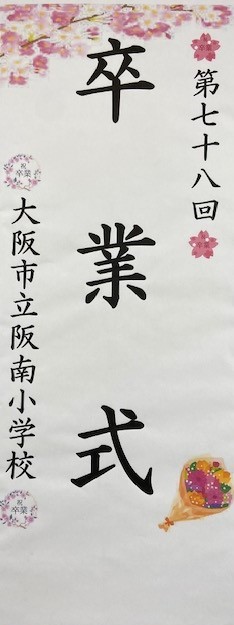 卒業
第七十八回
卒業
卒業式
祝
卒業
大阪市立阪南小学校
祝
卒業